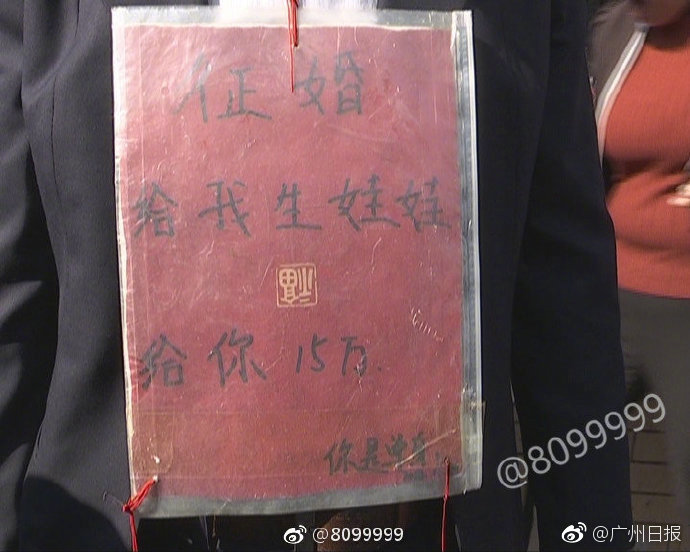 征婚
给我生娃娃
给你15万.
你是单身
@8099999
@8099999
@广州日报